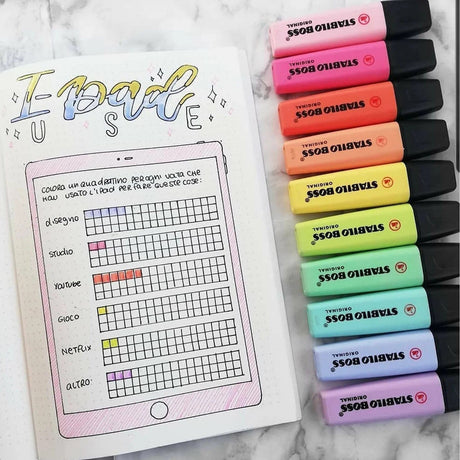 IPad
USE
COLORA UN QUADRATTINO PER OGNI VOLTA CHE
HAU USATO L'IPAD PER FARE QUESTE COSE:
disegno
studio
YouTube
GIOCO
NETFLIX
ALTRO:
STABILO BOSS
ORIGINAL
STABILO BOSS
ORIGINAL
STABILO BOSS
ORIGINAL
STABILO BOSS
ORIGINAL
STABILO BOSS
ORIGINAL
STABILO BOSS
ORIGINAL
STABILO BOSS
ORIGINAL
STABILO BOSS
ORIGINAL
STABILO BOSS
ORIGINAL
STABILO BOSS
ORIGINAL